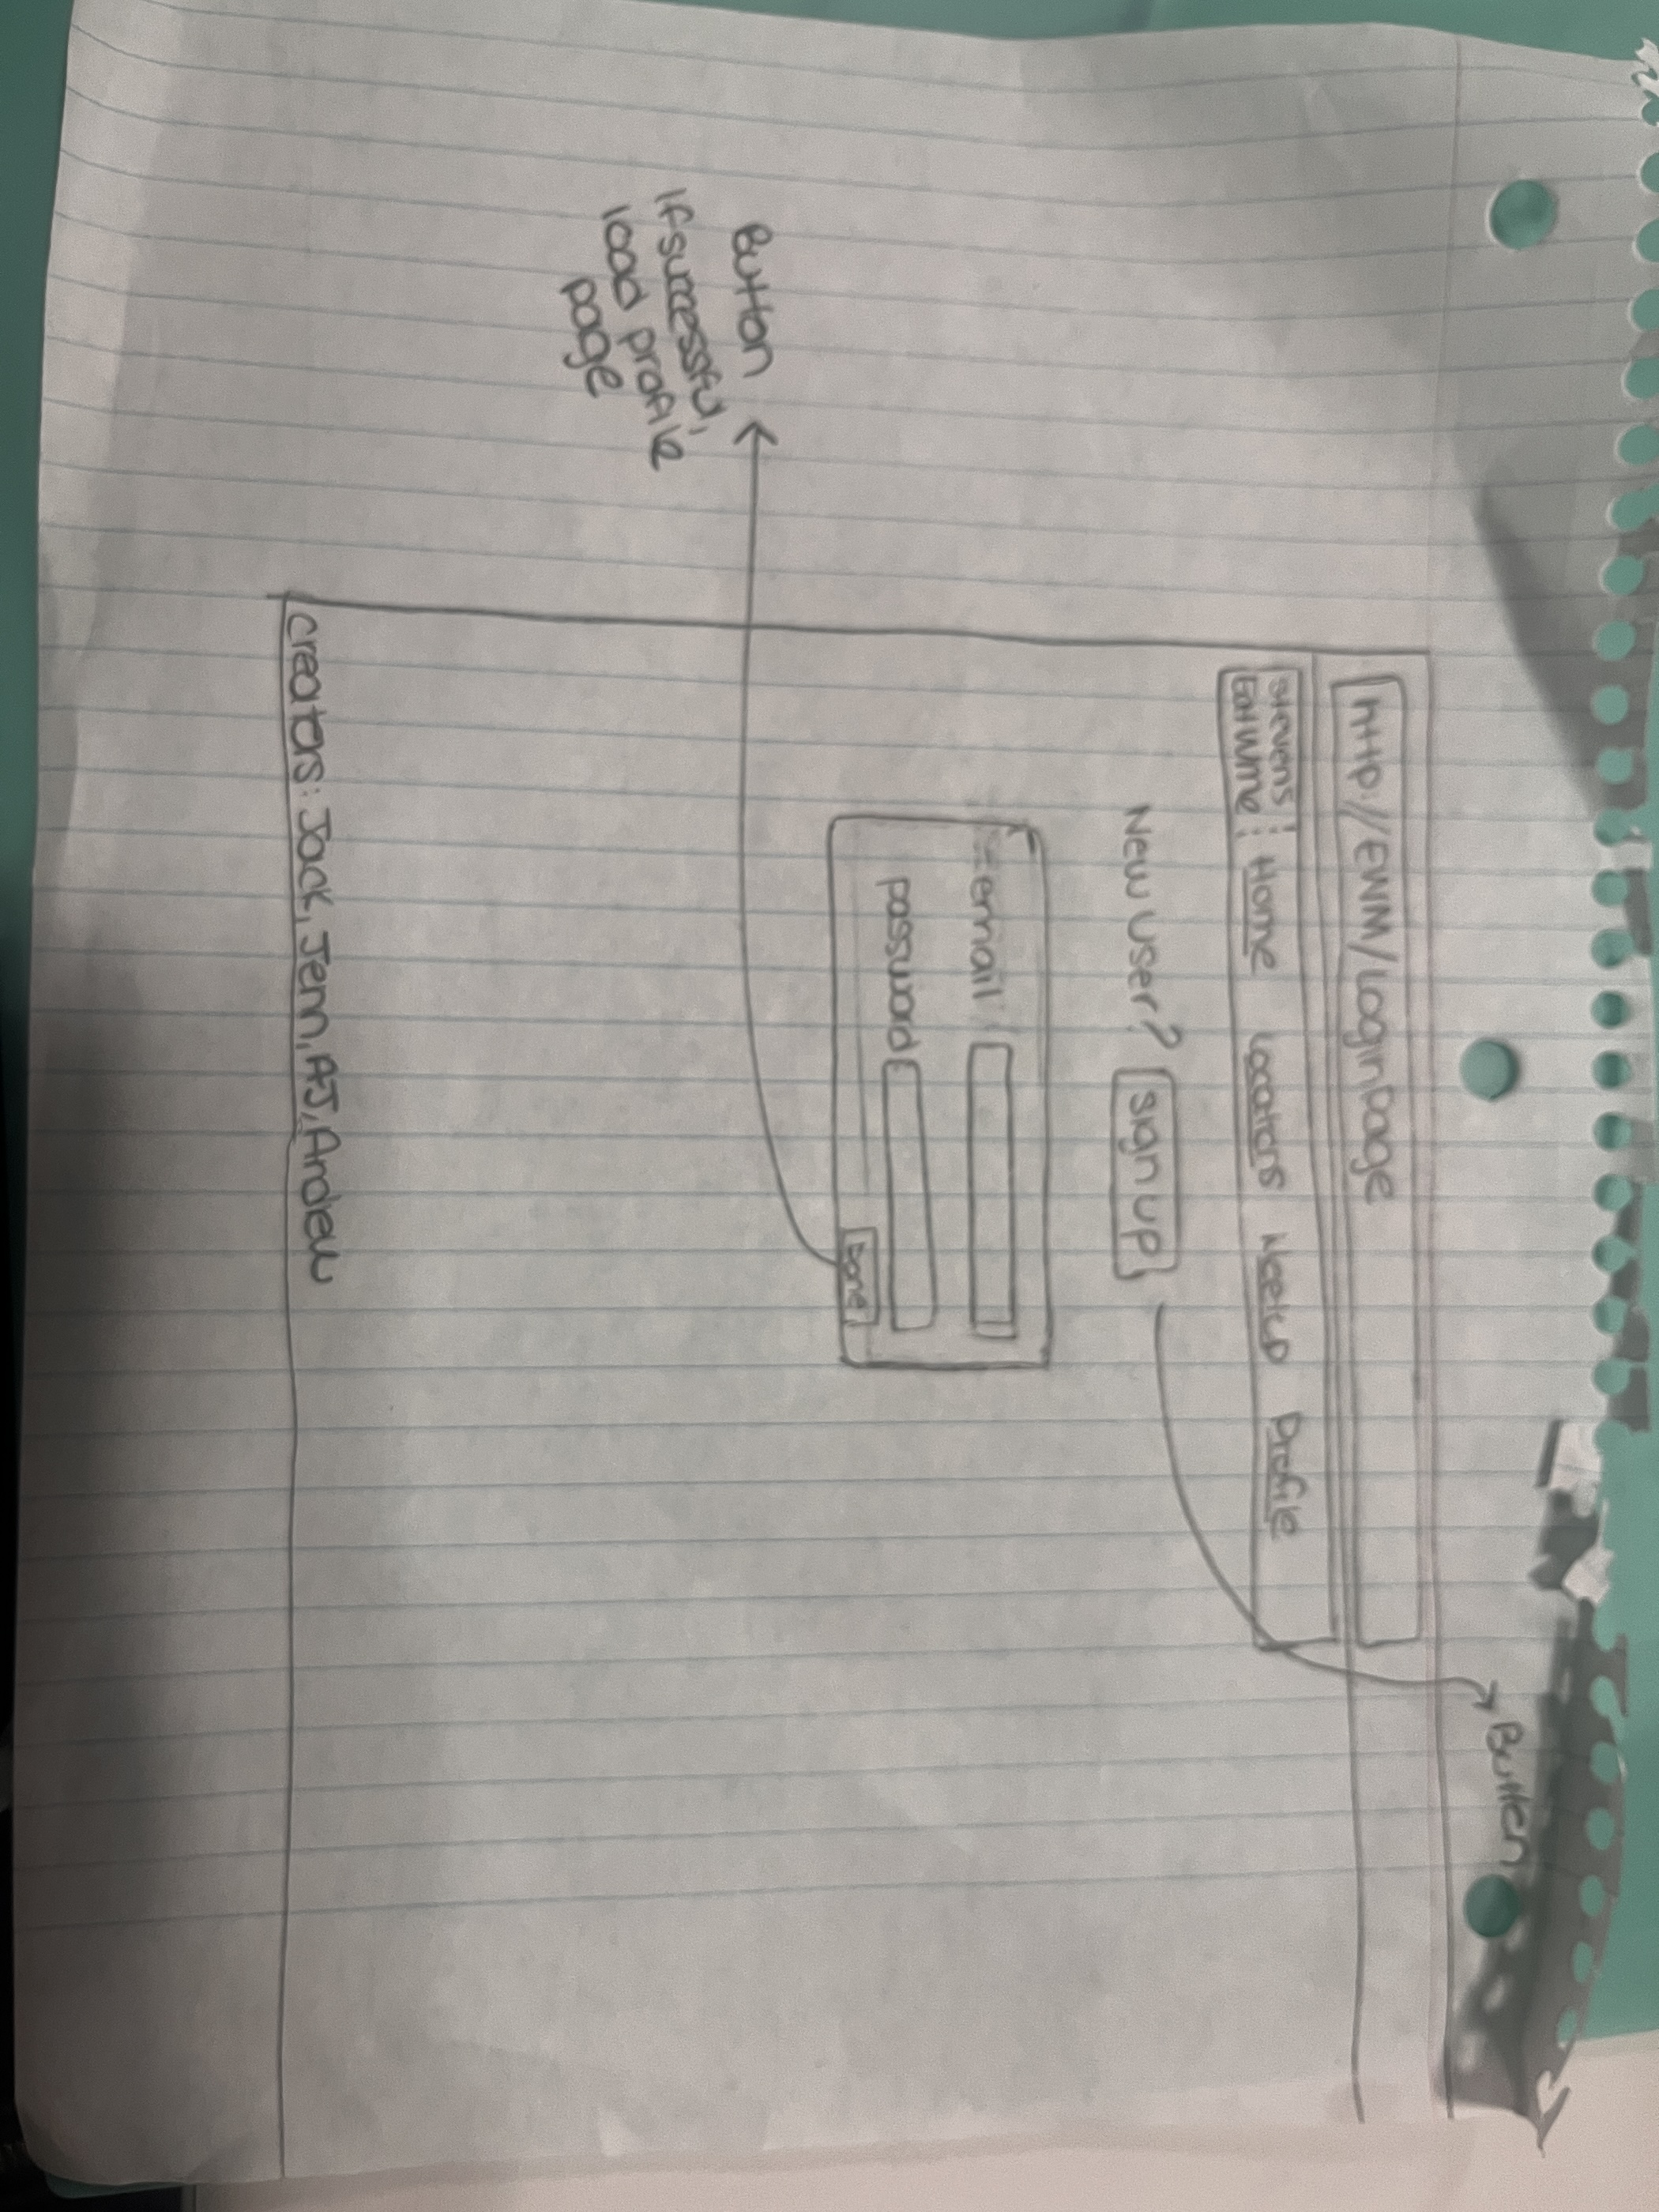 Button
http://EWM/LoginPage
Stevens!
EatWme! Home Locations Meetup Profile
New User? Sign up
email
password
Done
Button
If successful,
load profile
page
Creators: Jack, Jenn, AJ, Andew